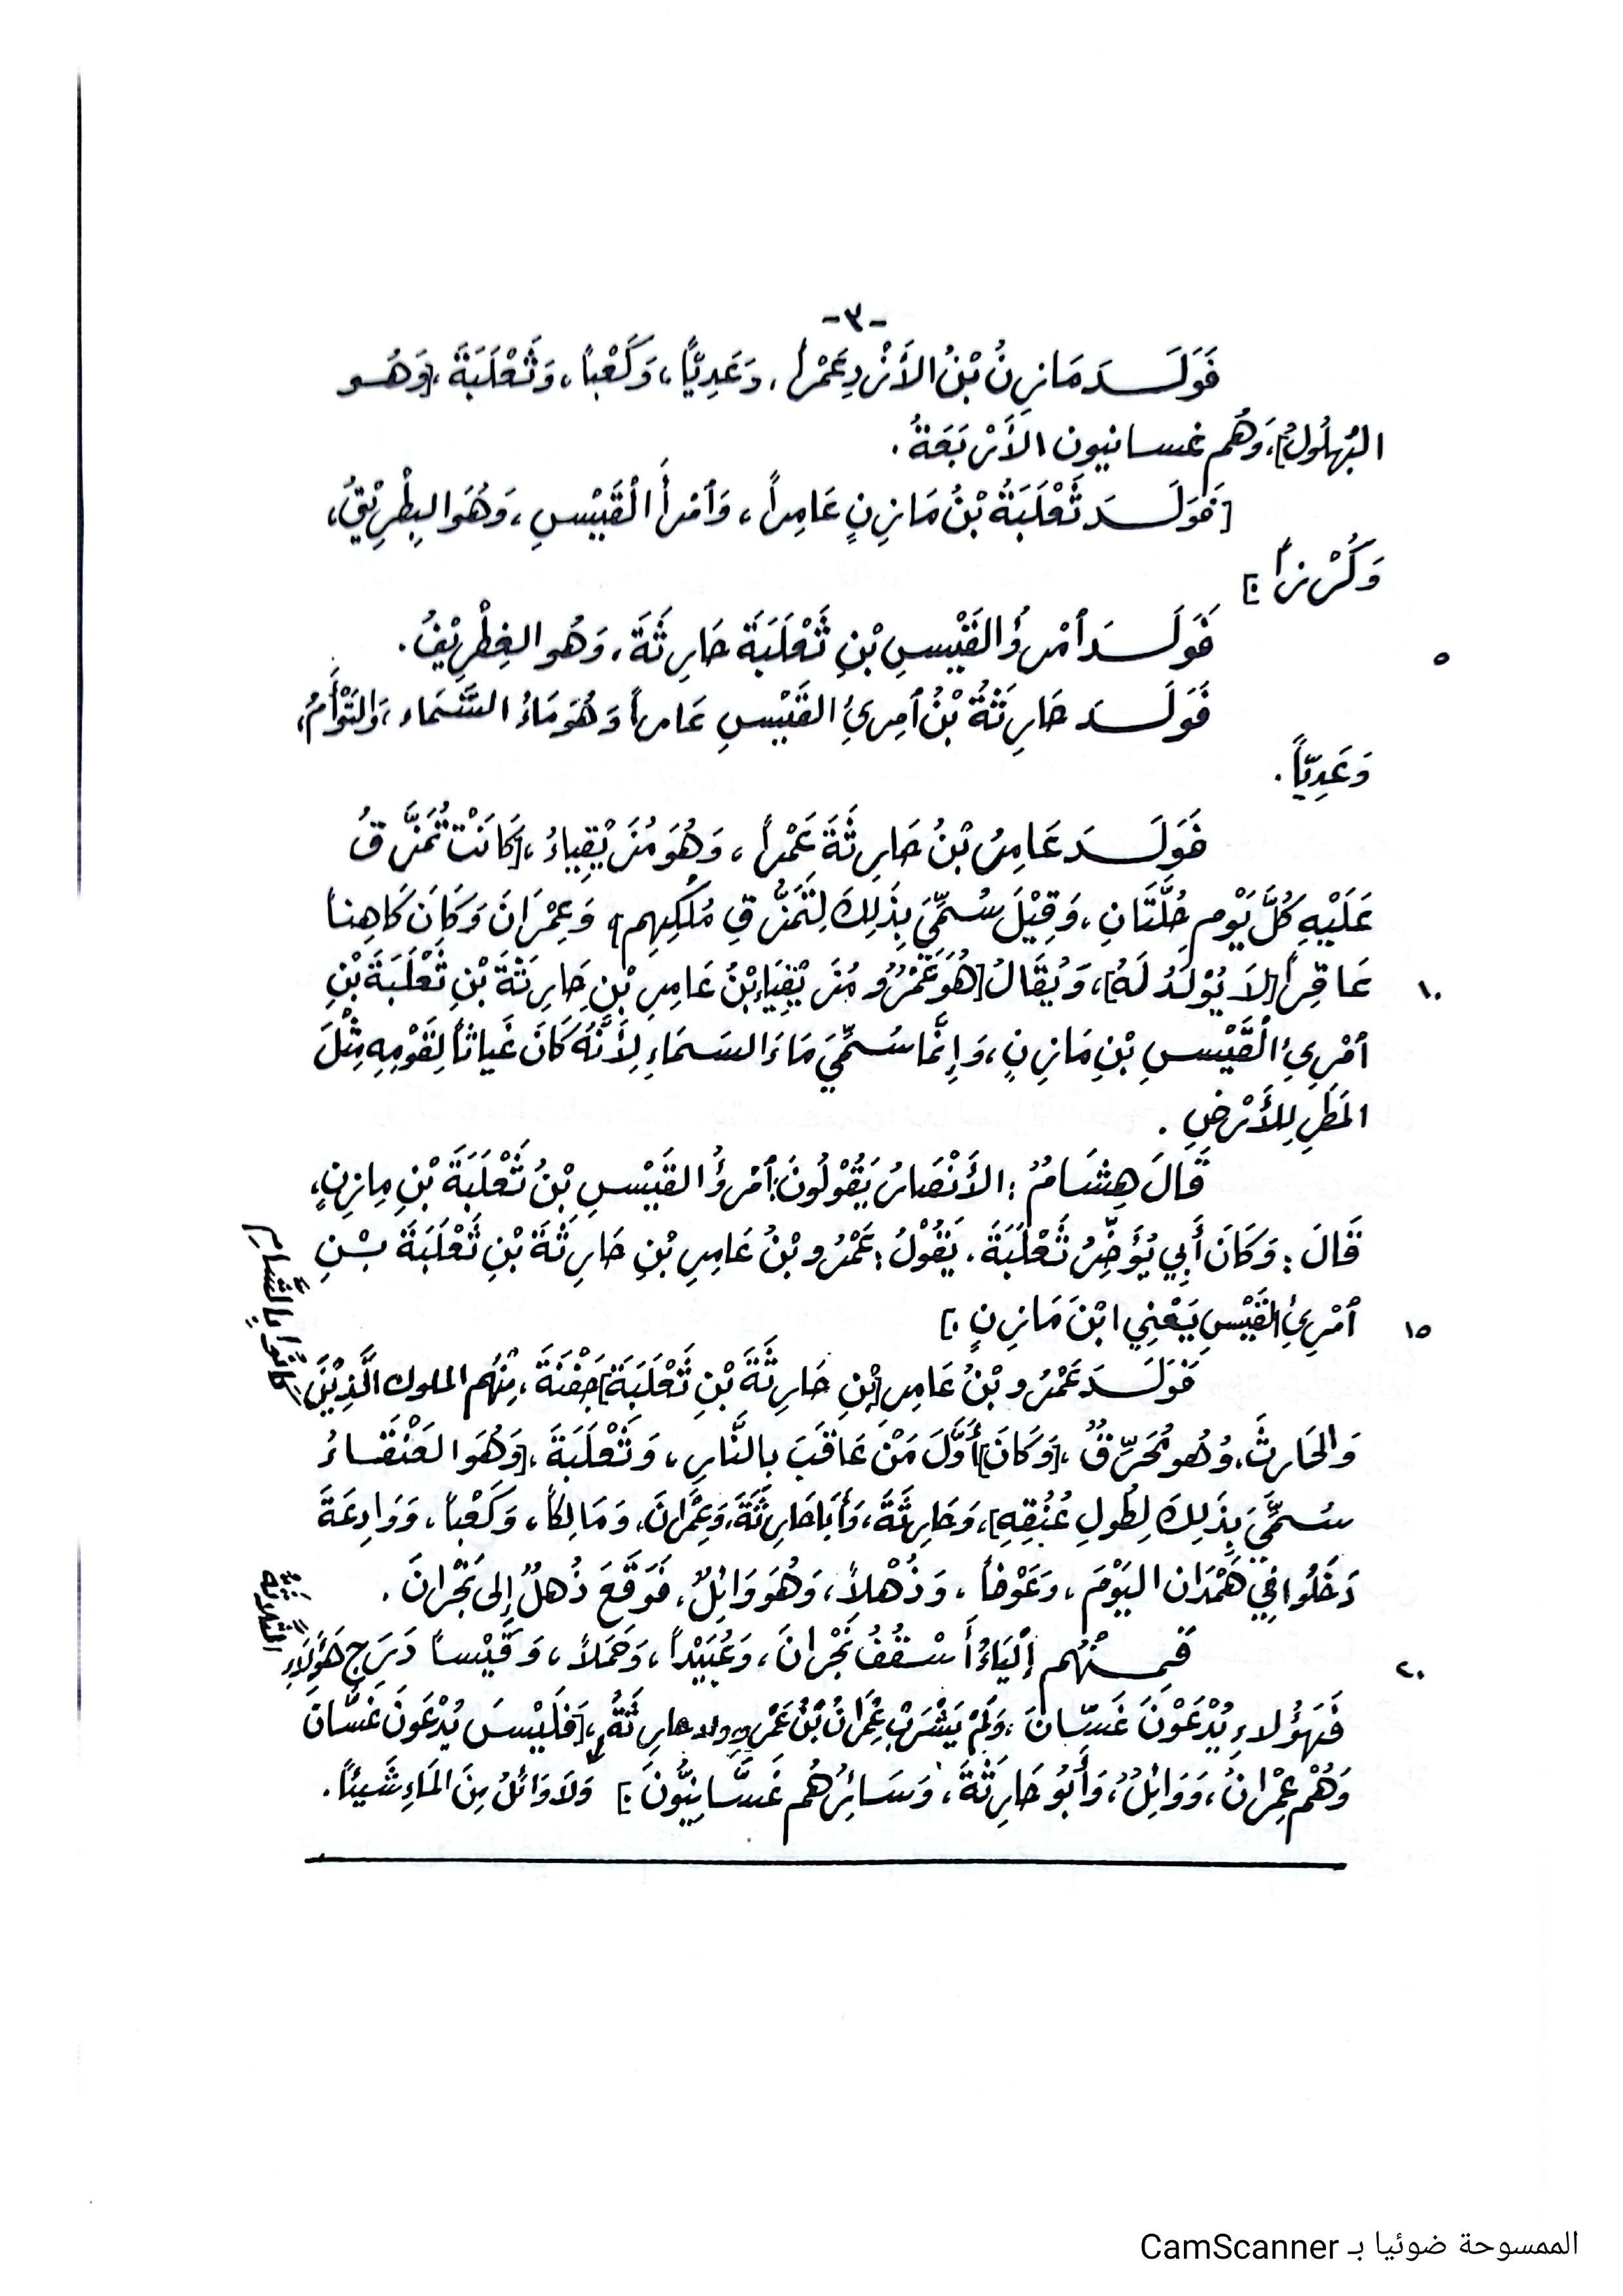 -٣-
فَوَلَـدَ مَازِنُ بْنُ الأَزْدِ عَمْراً، وَعَدِيّاً، وَكَعْباً، وَثَعْلَبَةَ، [وَهُـو
البُهْلُولُ]، وَهُم غسانيون الأَرْبَعَةُ.
[فَوَلَـدَ ثَعْلَبَةُ بْنُ مَازِنٍ عَامِراً، وَٱمْرأَ الْقَيْسِ، وَهُوَ البِطْرِيْقُ،
وَكُرْزاً.]
٥ فَوَلَـدَ ٱمْرؤُ القَيْسِ بْنِ ثَعْلَبَةَ حَارِثَةَ، وَهُو الغِطْرِيْفُ.
فَوَلَـدَ حَارِثَةُ بْنُ ٱمِرِئِ القَيْسِ عَامراً وَهُوَ مَاءُ السَّمَاء، وَالتَّوْأَمُ،
وَعَدِيّاً.
فَوَلَـدَ عَامِرُ بْنُ حَارِثَةَ عَمْراً، وَهُوَ مُزَيْقِيَاءُ، [كَانَتْ تُمَزَّقُ
عَلَيْهِ كُلَّ يَوْمٍ حُلَّتَانِ، وَقِيْلَ سُمِّيَ بِذَلِكَ لِتَمَزُّقِ مُلْكِهِم] وَعِمْرَانَ وَكَانَ كَاهِناً
١٠ عَاقِراً [لَا يُوْلَدُ لَهُ]، وَيُقَالُ [هُوَ عَمْرُو مُزَيْقِيَاءِ بْنُ عَامِرِ بْنِ حَارِثَةَ بْنِ ثَعْلَبَةَ بْنِ
ٱمْرِئِ الْقَيْسِ بْنِ مَازِنٍ، وَإِنَّمَا سُمِّيَ مَاءَ السَمَاءِ لِأَنَّهُ كَانَ غَيَاثاً لِقَوْمِهِ مِثْلَ
المَطَرِ لِلأَرْضِ.
قَالَ هِشَامُ: الأَنْصَارُ يَقُوْلُونَ: ٱمْرؤُ القَيْسِ بْنُ ثَعْلَبَةَ بْنِ مازِنٍ،
قَالَ: وَكَانَ أَبِي يُؤَخِّرُ ثَعْلَبَةَ. يَقُوْلُ: عَمْرُو بْنُ عَامِرِ بْنِ حَارِثَةَ بْنِ ثَعْلَبَةَ بْـنِ
١٥ ٱمْرِئِ القَيْسِ يَعْنِي ابْنَ مَازِنٍ.]
فَوَلَـدَ عَمْرُو بْنُ عَامِرِ [بْنِ حَارِثَةَ بْنِ ثَعْلَبَةَ] جَفْنَةَ، مِنْهُم الملوك الَّذِيْنَ كَانُوا بِالشَّامِ
وَالحَارِثَ، وَهُو مُحَرِّقُ، [وَكَانَ] أَوَّلَ مَنْ عَاقَبَ بالنَّارِ، وَثَعْلَبَةَ، [وَهُوَ العَنْقَاءُ
سُمِّيَ بِذَلِكَ لِطُولِ عُنُقِهِ]، وَحَارِثَةَ، وَأَبَا حَارِثَةَ، وَعِمْرَانَ، وَمَالِكاً، وَكَعْباً، وَوَادِعَةَ
دَخَلُوا فِي هَمْدَان اليَوْمَ، وَعَوْفاً، وَذُهْلاً، وَهُوَ وَائِلٌ، فَوَقَعَ ذُهلُ إِلى نَجْرانَ.
٢٠ فَمِـنْهُم إِلْيَاءُ أَسْقُفُ نَجْرانَ، وَعُبَيْداً، وَحَمَلاً، وَقَيْساً دَرَجَ هَؤُلَاءِ الثَّلَاثَةُ
فَهَؤُلاءِ يُدْعَوْنَ غَسّانَ، وَلَمْ يَشْرَبْ عِمْرَانُ بْنُ عَمْرٍو ولا حارِثَةُ، [فَلَيْسَ يُدْعَونَ غَسَّانَ
وَهُمْ عِمْرانُ، وَوَائِلُ، وَأَبُو حَارِثَةَ، وَسَائِرُهُم غَسَّانِيُّونَ.] وَلَا وَائِلُ مِنَ المَاءِ شَيئاً.
الممسوحة ضوئيا بـ CamScanner